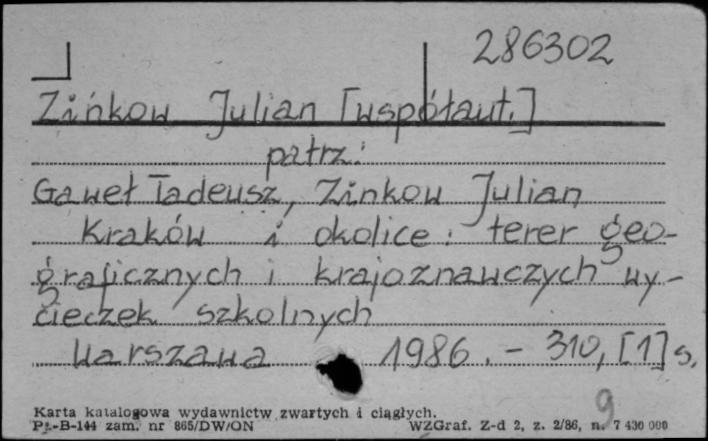 286302
Zińkow Julian [współaut.]
patrz:
Gaweł Tadeusz, Zinkow Julian
Kraków i okolice: terer geo-
graficznych i krajoznawczych wy-
cieczek szkolnych
Warszawa 1986. - 310, [1] s.
9
Karta katalogowa wydawnictw zwartych i ciągłych.
Pu-B-144 zam. nr 865/DW/ON WZGraf. Z-d 2, z. 2/86, n. 7 430 000